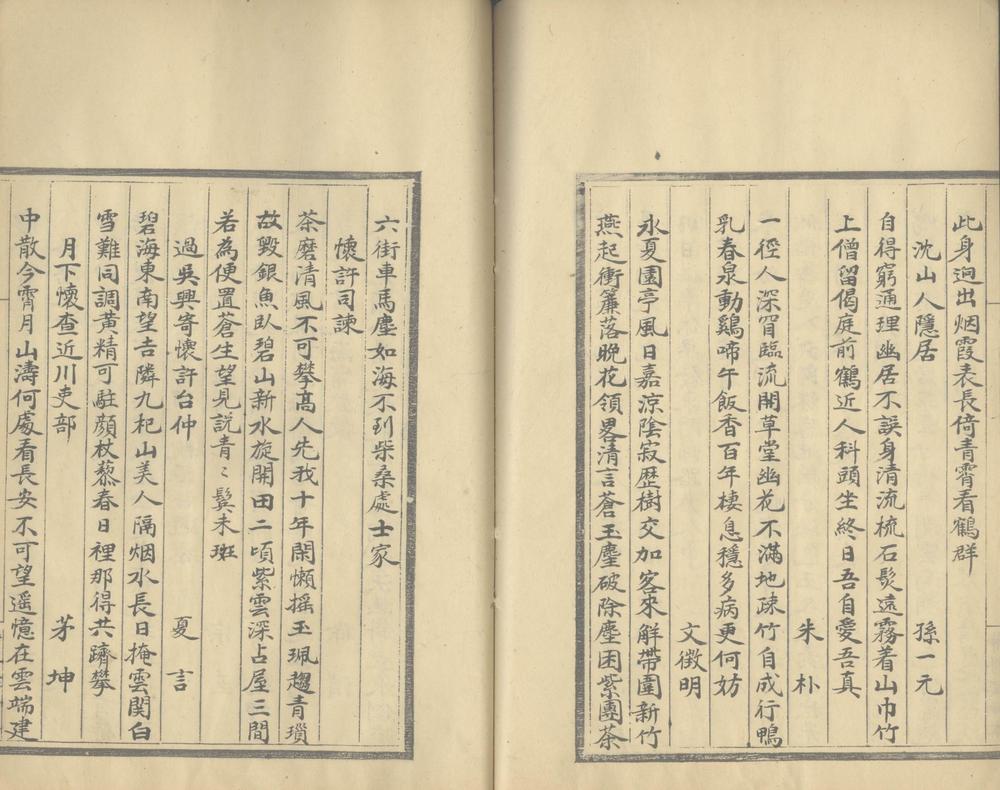 此身迥出烟霞表長倚青霄看鶴群
沈山人隱居 孫一元
自得窮通理幽居不誤身清流梳石髮遠霧着山巾竹
上僧留偈庭前鶴近人科頭坐終日吾自愛吾真
朱朴
一徑人深窅臨流開草堂幽花不滿地疎竹自成行鴨
乳春泉動鷄啼午飯香百年棲息穩多病更何妨
文徵明
永夏園亭風日嘉涼陰寂歴樹交加客來解帶圍新竹
燕起衝簾落晚花領畧清言蒼玉麈破除塵困紫團茶
六街車馬塵如海不到柴桑處士家
懷許司諫
茶磨清風不可攀高人先我十年閑懶摇玉珮趨青瑣
故毀銀魚臥碧山新水旋開田二頃紫雲深占屋三間
若為便置蒼生望見說青〻鬓未斑
過吳興寄懷許台仲 夏言
碧海東南望吉隣九杞山美人隔烟水長日掩雲関白
雪難同調黃精可駐顔杖藜春日裡那得共躋攀
月下懷查近川吏部 茅坤
中散今霄月山濤何處看長安不可望遥憶在雲端建